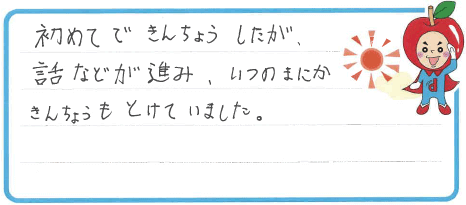 初めてで きんちょう したが、
話などが進み、いつのまにか
きんちょうも とけていました。
d